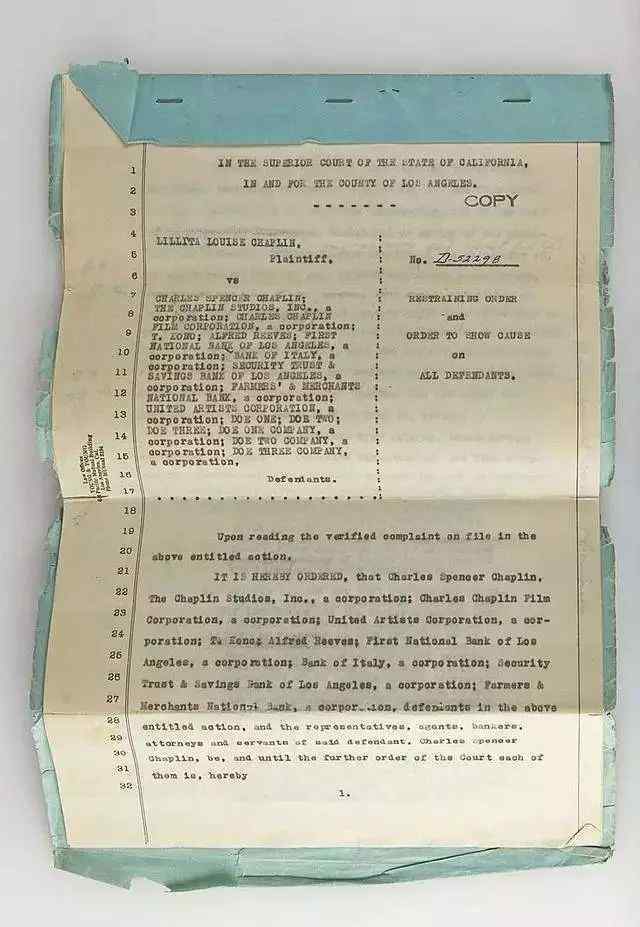 IN THE SUPERIOR COURT OF THE STATE OF CALIFORNIA,
IN AND FOR THE COUNTY OF LOS ANGELES.
- - - - - - -
COPY
LILLITA LOUISE CHAPLIN,
Plaintiff,
vs
CHARLES SPENCER CHAPLIN;
THE CHAPLIN STUDIOS, INC., a
corporation; CHARLES CHAPLIN
FILM CORPORATION, a corporation;
T. KONO; ALFRED REEVES; FIRST
NATIONAL BANK OF LOS ANGELES, a
corporation; BANK OF ITALY, a
corporation; SECURITY TRUST &
SAVINGS BANK OF LOS ANGELES, a
corporation; FARMERS' & MERCHANTS
NATIONAL BANK, a corporation;
UNITED ARTISTS CORPORATION, a
corporation; DOE ONE; DOE TWO;
DOE THREE; DOE ONE COMPANY, a
corporation; DOE TWO COMPANY, a
corporation; DOE THREE COMPANY,
a corporation,
Defendants.
No. D-52298
RESTRAINING ORDER
and
ORDER TO SHOW CAUSE
on
ALL DEFENDANTS.
Law Offices
YOUNG & YOUNG
Upon reading the verified complaint on file in the
above entitled action,
IT IS HEREBY ORDERED, that Charles Spencer Chaplin,
The Chaplin Studios, Inc., a corporation; Charles Chaplin Film
Corporation, a corporation; United Artists Corporation, a cor-
poration; T. Kono; Alfred Reeves; First National Bank of Los
Angeles, a corporation; Bank of Italy, a corporation; Security
Trust & Savings Bank of Los Angeles, a corporation; Farmers &
Merchants National Bank, a corporation, defendants in the above
entitled action, and the representatives, agents, bankers,
attorneys and servants of said defendant, Charles Spencer
Chaplin, be, and until the further order of the Court each of
them is, hereby
1.
1
2
3
4
5
6
7
8
9
10
11
12
13
14
15
16
17
18
19
20
21
22
23
24
25
26
27
28
29
30
31
32